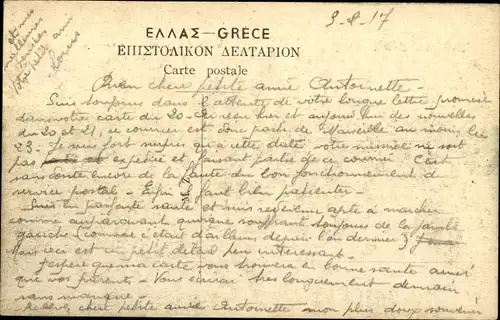 3-8-17
ΕΛΛΑΣ—GRÈCE
ΕΠΙΣΤΟΛΙΚΟΝ ΔΕΛΤΑΡΙΟΝ
Carte postale
Bien chère petite amie Antoinette
Suis toujours dans l'attente de votre longue lettre promise
dans votre carte du 20- Ai reçu hier et aujourd'hui des nouvelles
du 20 et 21, ce courrier est donc parti de Marseille au moins le
23- Je suis fort surpris qu'à cette date votre missive ne soit
pas expédiée et faisant partie de ce courrier C'est
sans doute encore de la faute du bon fonctionnement du
service postal- Enfin faut bien patienter-
Suis en parfaite santé et suis apte à marcher
comme auparavant quoique souffrant toujours de la jambe
gauche (comme c'était d'ailleurs depuis l'an dernier)
ceci est un petit détail peu intéressant-
J'espère que ma carte vous trouvera en bonne santé ainsi
que vos parents- Vous écrirai très longuement demain
sans manque-
chère petite amie Antoinette mon plus doux souvenir
et mes
meilleures
Votre petit ami
Louis